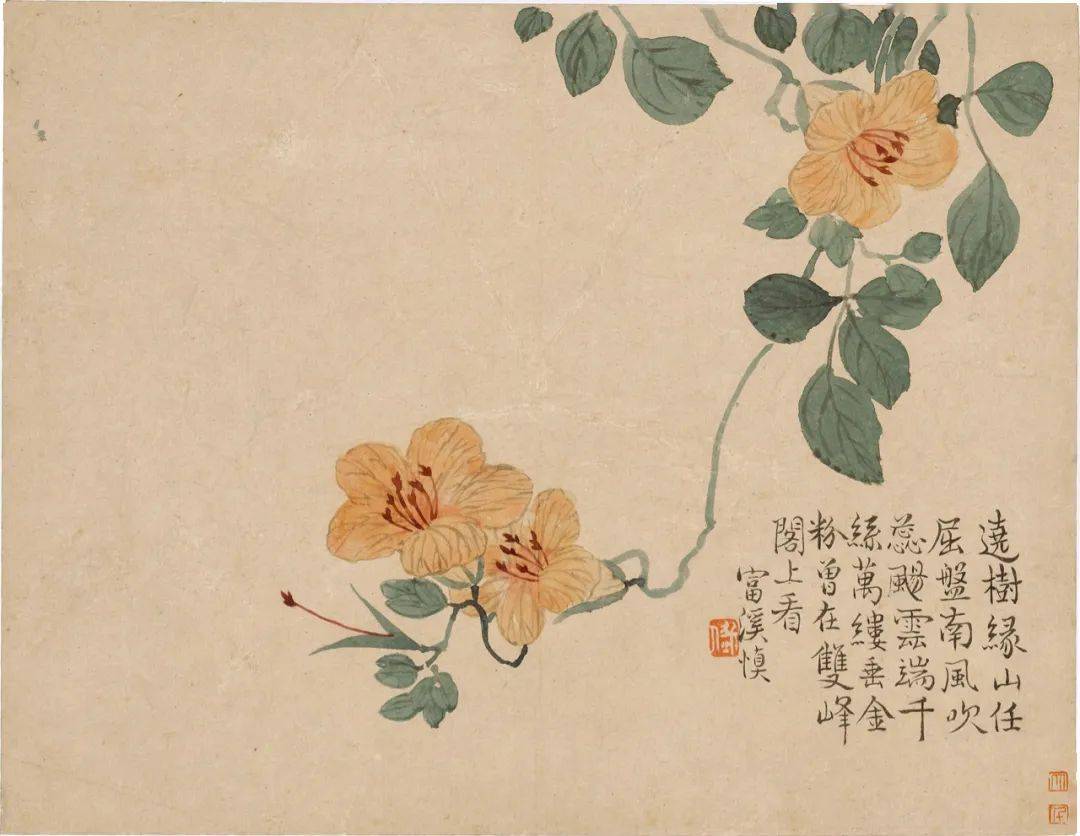 遶樹緣山任
屈盤南風吹
蕊颺雲端千
絲萬縷垂金
粉曾在雙峰
閣上看
富溪慎